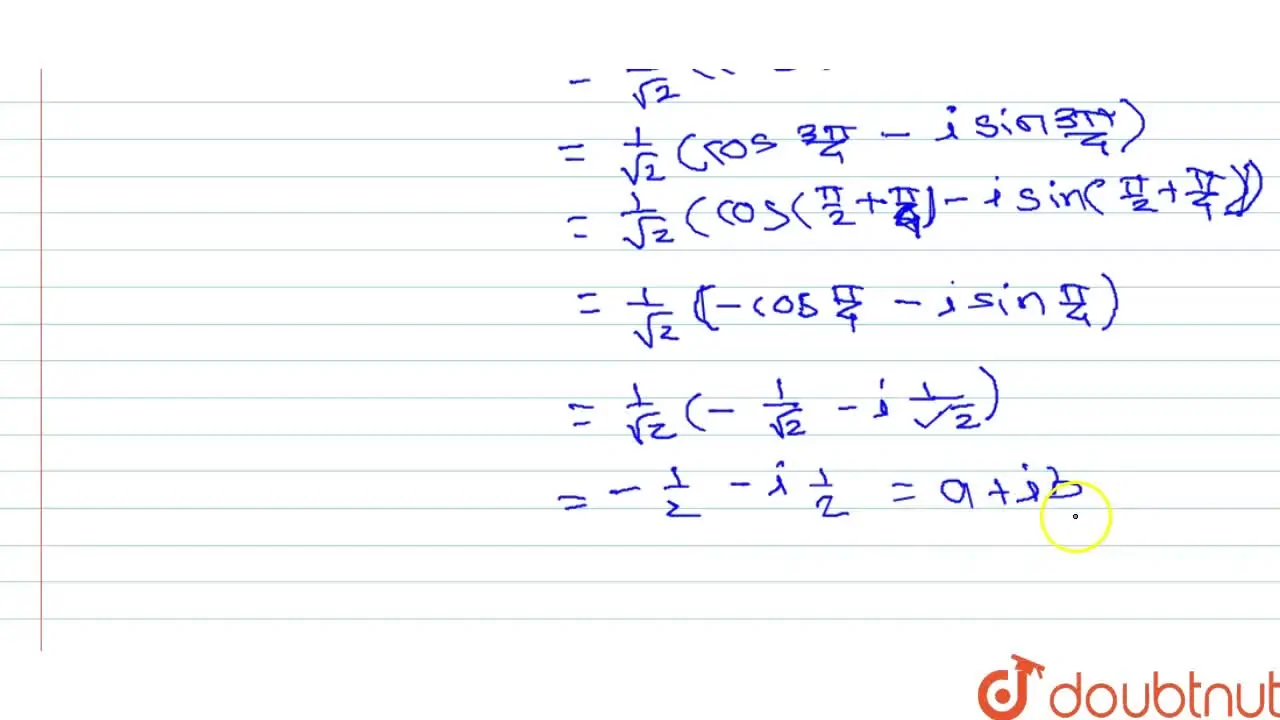 - 1/√2 (
= 1/√2 (cos 3π/4 - i sin 3π/4)
= 1/√2 (cos(π/2 + π/4) - i sin(π/2 + π/4))
= 1/√2 (-cos π/4 - i sin π/4)
= 1/√2 (- 1/√2 - i 1/√2)
= - 1/2 - i 1/2 = a + ib
doubtnut